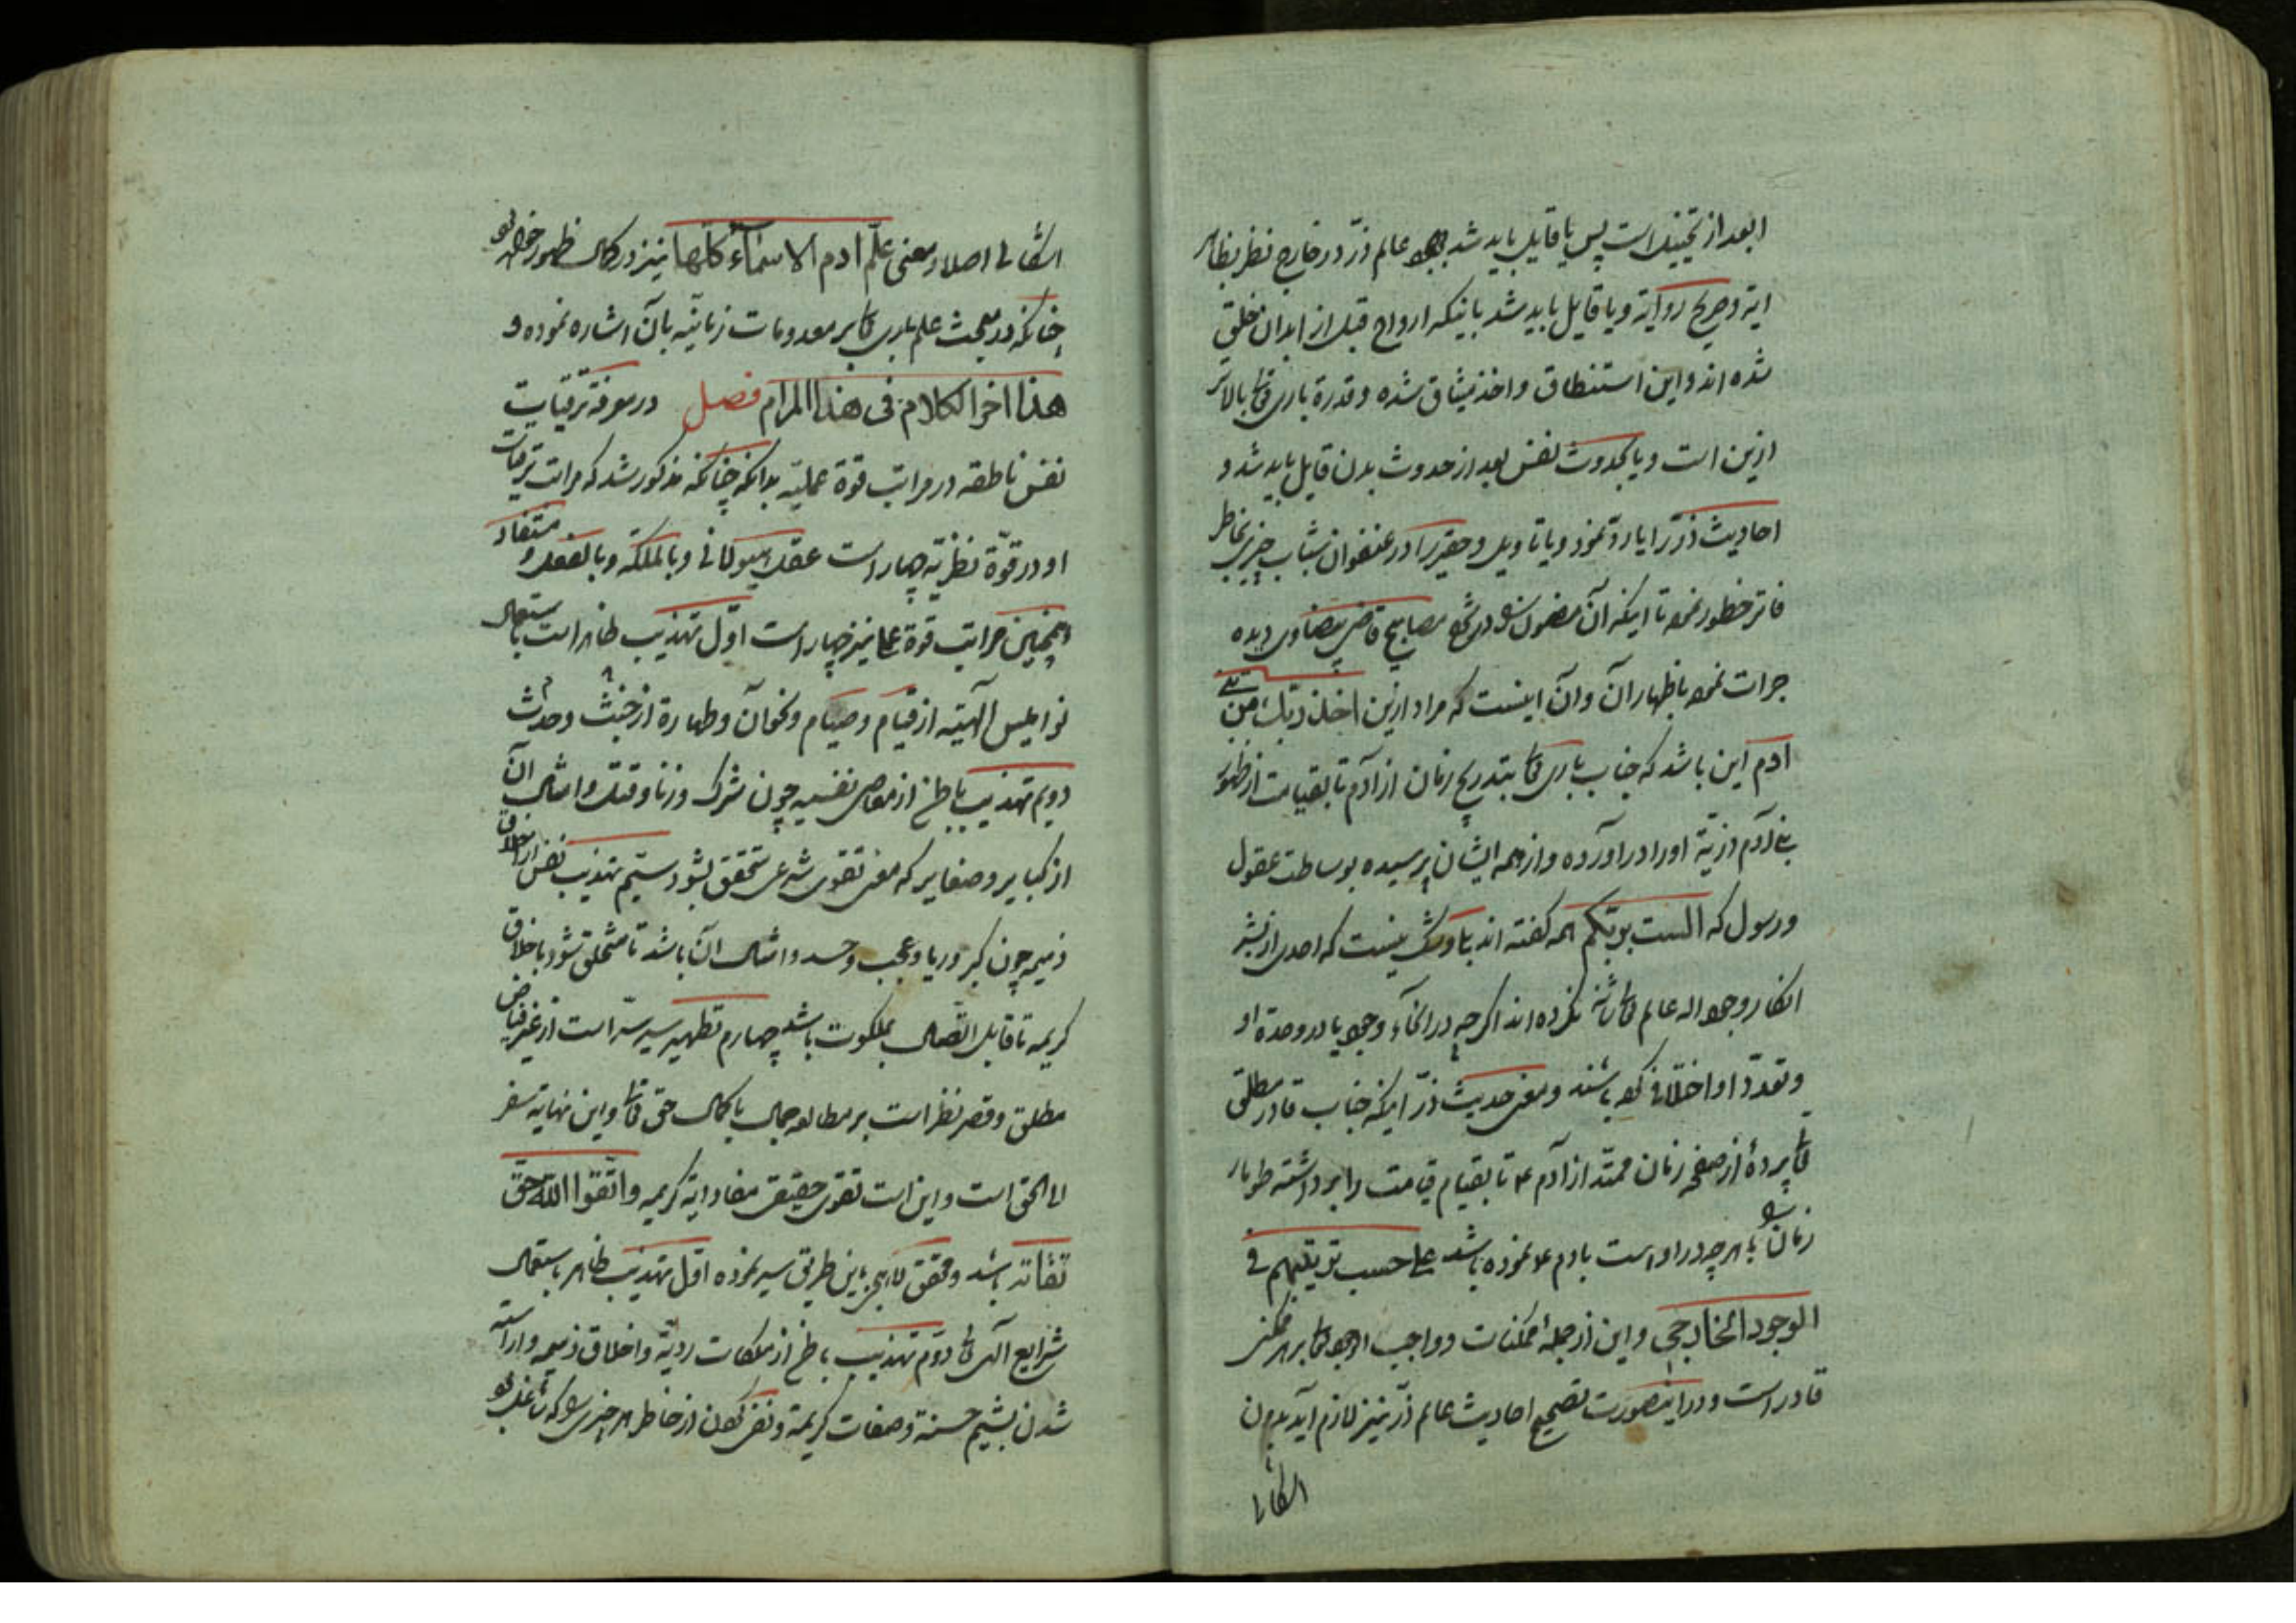 ابعد از تخییل است پس یا قایل باید شد بوجود عالم ذرّ در خارج نظر بظاهر
ایة و صریح روایة و یا قایل باید شد باینکه ارواح قبل از ابدان خلق
شده اند و این استنطاق و اخذ میثاق شده و قدرة باری تعالی بالاتر
ازین است و یا بحدوث نفس بعد از حدوث بدن قایل باید شد و
احادیث ذرّ را یا ردّ نمود و یا تاویل و حقیر را در عنفوان شباب چیزی بخاطر
فاتر خطور نمود تا اینکه آن مضمون را در شرح مصابیح قاضی بیضاوی دیده
جرات نمود باظهار آن و آن اینست که مراد ازین اخذ ربّک من بنی
ادم این باشد که جناب باری تعالی بتدریج زمان از آدم تا بقیامت از ظهور
بنی آدم ذریّة اورا در اورده و از همه ایشان پرسیده بوساطت عقول
و رسول که الست بربّکم همه گفته اند بلی و شک نیست که احدی از بشر
انکار وجود اله عالم تعالی شانه نکرده اند اگر چه در انحآء وجود یا در وحدة او
و تعدّد او اختلاف کرده باشند و معنی حدیث ذرّ اینکه جناب قادر مطلق
تعالی پردهٔ از صفحه زمان ممتدّ از آدم ع تا بقیام قیامت را برداشته طومار
زمان را با هر چه در او است بادم ع نموده باشد علی حسب ترتیبهم فی
الوجود الخارجی و این از جمله ممکنات و واجب الوجود تعالی بر هر ممکن
قادر است و در اینصورت تصحیح احادیث عالم ذرّ نیز لازم آید بدون
اشکالی
اشکالی اصلا و معنی علّم ادم الاسمآء کلّها نیز در کمال ظهور خواهد بود
چنانکه در مبحث علم باری تعالی بر معدومات زمانیّه بآن اشاره نموده و
هذا اخر الکلام فی هذا المرام فصل در معرفة ترقیات
نفس ناطقه در مراتب قوة عملیّه بدانکه چنانکه مذکور شد که مراتب ترقیات
او در قوّة نظریّه چهار است عقل هیولانی و بالملکه و بالفعل و مستفاد
همچنین مراتب قوة عملی نیز چهار است اوّل تهذیب ظاهر است باستعمال
نوامیس الهیّه از قیام و صیام و نحوآن و طهارة از خبث و حدث
دویم تهذیب باطن از معاصی نفسیه چون شرک و زنا و قتل و امثال آن
از کبایر و صغایر که معنی تقوی شرعی متحقق بشود سیّم تهذیب نفس از اخلاق
ذمیمه چون کبر و ریا و عجب و حسد و امثال آن باشد تا متخلق شود باخلاق
کریمه تا قابل اتّصال بملکوت باشد چهارم تطهیر سیر سرّ است از غیر فیاض
مطلق و قصر نظر است بر مطالعه جمال با کمال حق تعالی و این نهایة سفر
الی الحق است و این است تقوی حقیقی مفاد ایة کریمه و اتّقوا الله حقّ
تقاته باشد و محقق لاهیجی باین طریق سیر نموده اوّل تهذیب ظاهر باستعمال
شرایع الهی تعالی دوّم تهذیب باطن از ملکات ردیّة و اخلاق ذمیمه و آراسته
شدن بشیم حسنة و صفات کریمة و نفی کردن از خاطر هر چیزی را که شاغل بود